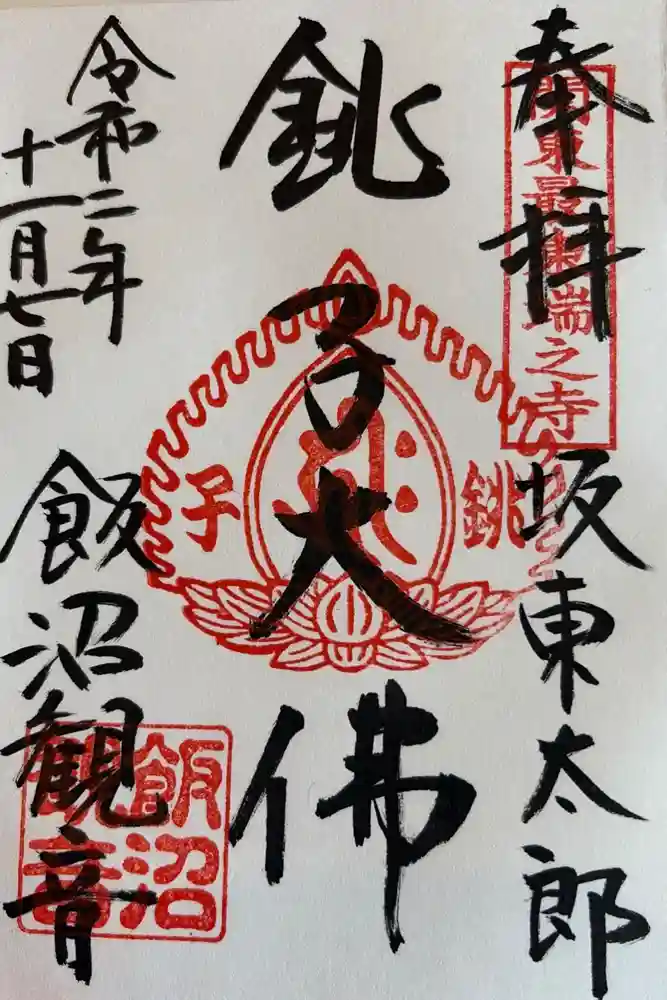 奉拝
坂東太郎
関東最東端之寺
銚子大佛
銚子
令和二年
十一月七日
飯沼観音
飯沼
観音